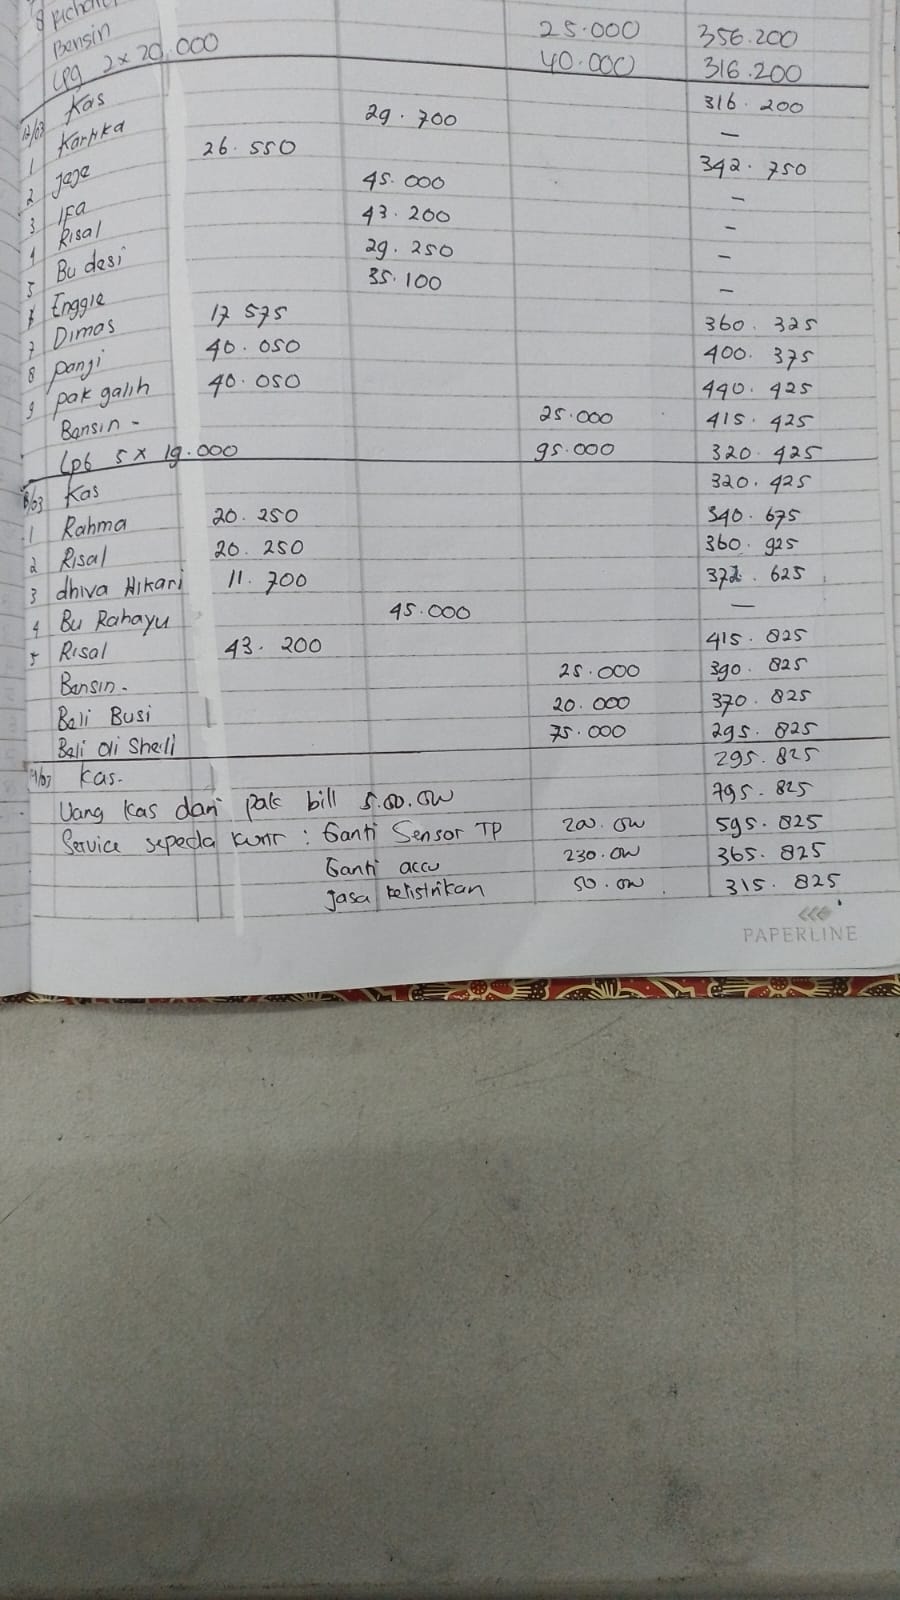 8
Bensin 25.000 356.200
Lpg 2 x 20.000 40.000 316.200
12/03 Kas 316.200
1 Kartika 29.700 —
2 Jaja 26.550 342.750
3 Ifa 45.000 -
4 Risal 43.200 -
5 Bu desi 29.250 -
6 Enggie 35.100 -
7 Dimas 17 575 360.325
8 panji 40.050 400.375
9 pak galih 40.050 440.425
Bensin - 25.000 415.425
Lpg 5 x 19.000 95.000 320.425
Kas 320.425
1 Rahma 20.250 340.675
2 Risal 20.250 360.925
3 dhiva Hikari 11.700 372.625
4 Bu Rahayu 45.000 —
5 Risal 43.200 415.825
Bensin. 25.000 390.825
Beli Busi 20.000 370.825
Beli Oli Shell 75.000 295.825
14/03 Kas. 295.825
Uang Kas dari pak bill 5.00.000 795.825
Service sepeda kurir : Ganti Sensor TP 200.000 595.825
Ganti accu 230.000 365.825
Jasa kelistrikan 50.000 315.825
PAPERLINE